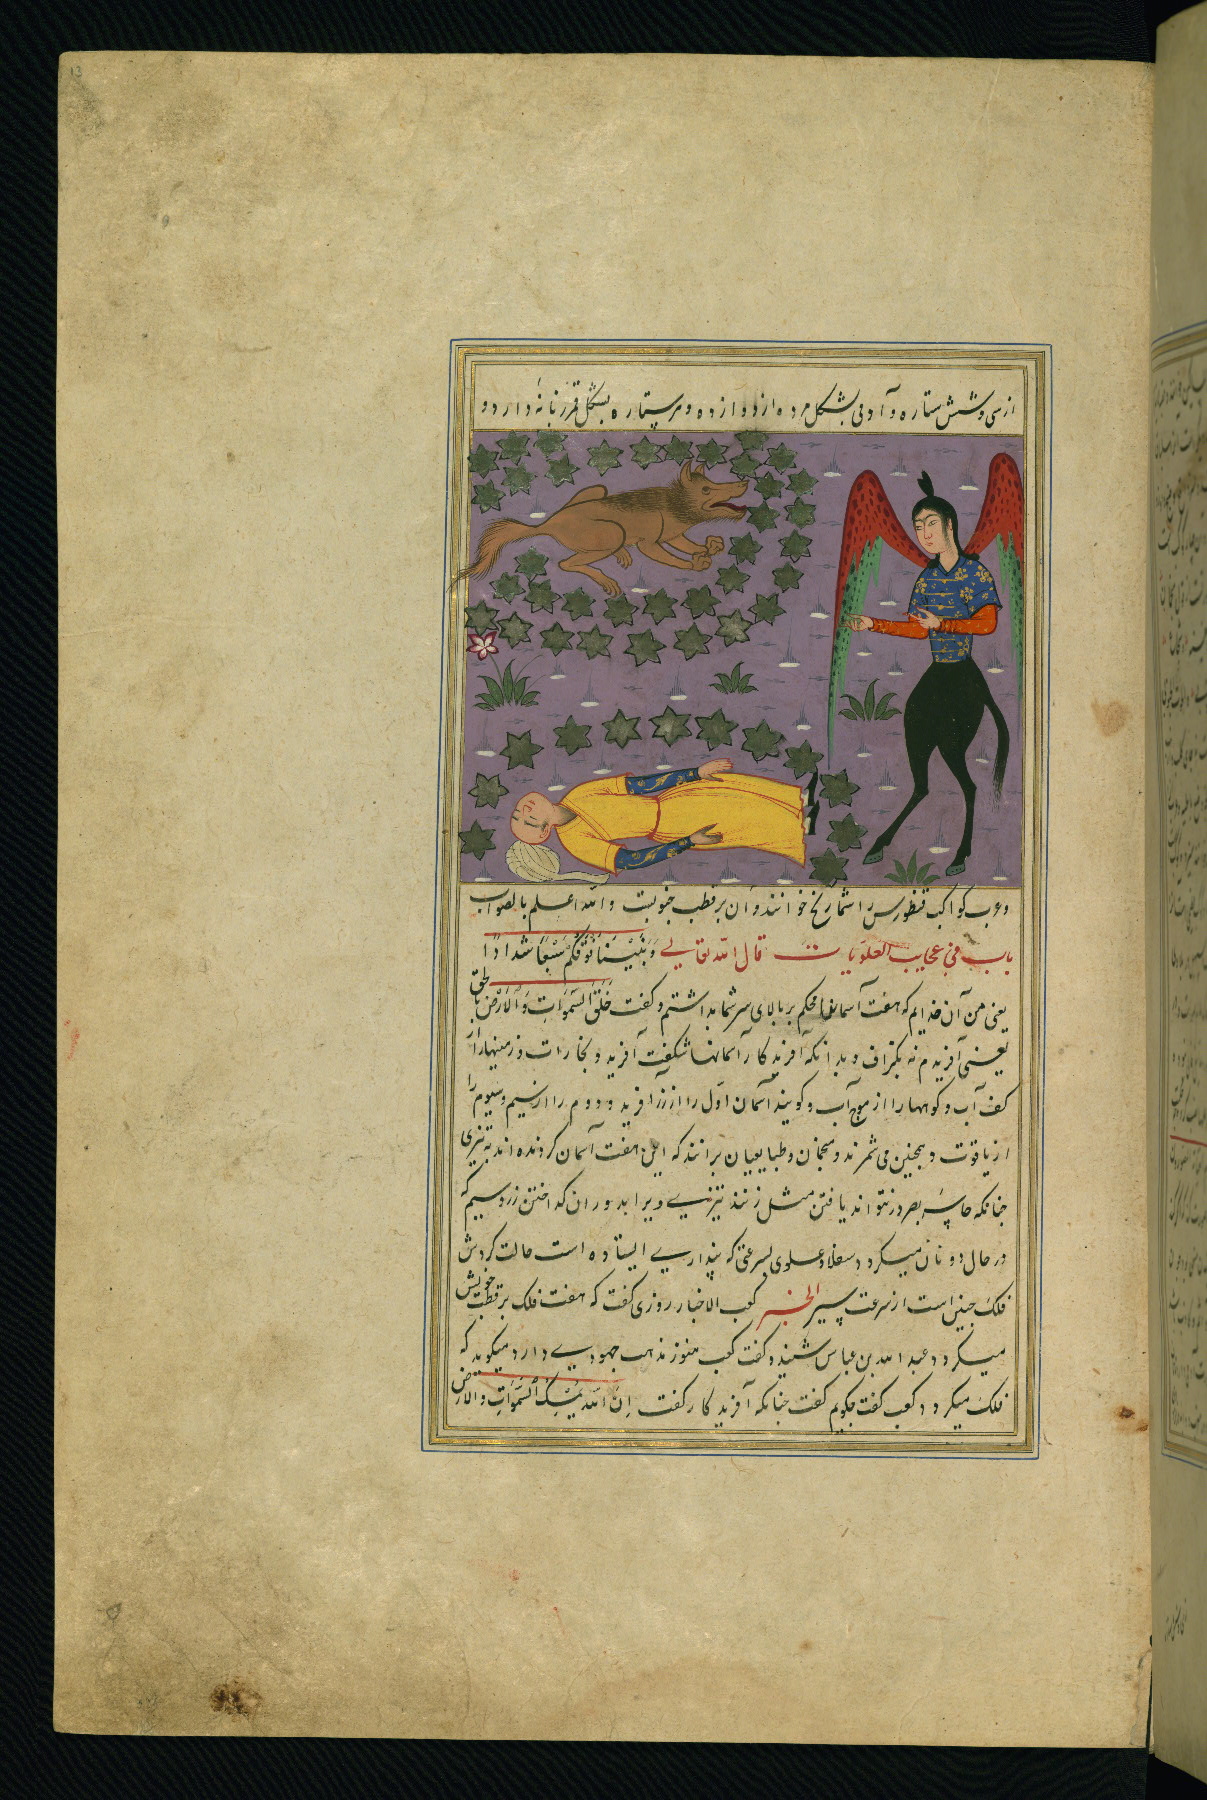 13
از سی و شش ستاره و آدمی بشکل مرده از دوازده و سرستاره بشکل زبانه دارد و
و عرب کواکب قنطورس را شماریخ خوانند و آن بر قطب جنوبست والله اعلم بالصواب
باب فی عجایب العلویات قال الله تعالی وَبَنَیْنَا فَوْقَکُمْ سَبْعًا شِدَادًا
یعنی من آن خدایم که هفت آسمانها محکم بر بالای سر شما بداشتم و کفت خَلَقَ السَّمٰوَاتِ وَالْاَرْضَ بالحق
یعنی آفریدم نه بکزاف و بدانکه آفریدکار آسمانها شکفت آفرید و بخارات و زمینها را از
کف آب و کوهها را از موج آب و کویند آسمان اوّل را از زر آفرید و دوم را از سیم و سیوم را
از یاقوت و همچنین می شمرند و منجمان و طبایعیان برانند که این هفت آسمان کردنده اند به تیزی
چنانکه حاسّه بصر در نتواند یافتن مثل زنند تیزیی ویرا بدوران که
در حال دو نان میکردد سفلا و علوی بسرعتی که پنداریی ایستاده است حالت کردش
فلک چنین است از سرعت سیر الخبر کعب الاخبار روزی کفت که هفت فلک بر قطب خویش
میکردد عبدالله بن عباس شنید و کفت کعب هنوز مذهب جهودیی دارد میکوید که
فلک میکردد کعب کفت چکویم کفت چنانکه آفریدکار کفت اِنَّ اللّٰهَ یُمْسِکُ السَّمٰوَاتِ وَالْاَرْضَ